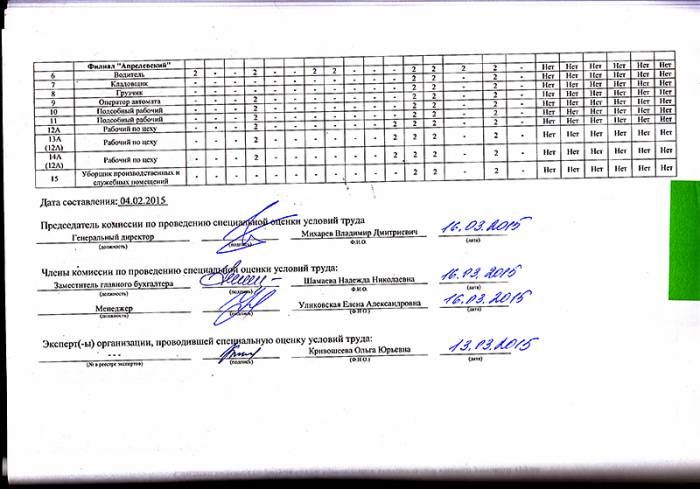 Филиал "Апрелевский"
6 Водитель 2 - - 2 - - 2 2 - - - 2 2 - 2 - Нет Нет Нет Нет Нет Нет
7 Кладовщик - - - - - - - - - - - 2 2 - 2 - Нет Нет Нет Нет Нет Нет
8 Грузчик - - - - - - - - - - - 2 2 - 2 - Нет Нет Нет Нет Нет Нет
9 Оператор автомата - - - 2 - - - - - - - 2 2 - 2 - Нет Нет Нет Нет Нет Нет
10 Подсобный рабочий - - - 2 - - - - - - - 2 2 - 2 - Нет Нет Нет Нет Нет Нет
11 Подсобный рабочий - - - 2 - - - - - - - 2 2 - 2 - Нет Нет Нет Нет Нет Нет
12А Рабочий по цеху - - - 2 - - - - - - 2 2 2 - 2 - Нет Нет Нет Нет Нет Нет
13А (12А) Рабочий по цеху - - - 2 - - - - - - 2 2 2 - 2 - Нет Нет Нет Нет Нет Нет
14А (12А) Рабочий по цеху - - - 2 - - - - - - 2 2 2 - 2 - Нет Нет Нет Нет Нет Нет
15 Уборщик производственных и служебных помещений - - - 2 - - - - - - - 2 2 - 2 - Нет Нет Нет Нет Нет Нет
Дата составления: 04.02.2015
Председатель комиссии по проведению специальной оценки условий труда
Генеральный директор Михарев Владимир Дмитриевич 16.03.2015
(должность) (подпись) Ф.И.О. (дата)
Члены комиссии по проведению специальной оценки условий труда:
Заместитель главного бухгалтера Шамаева Надежда Николаевна 16.03.2015
(должность) (подпись) Ф.И.О. (дата)
Менеджер Уликовская Елена Александровна 16.03.2015
(должность) (подпись) (Ф.И.О.) (дата)
Эксперт(-ы) организации, проводившей специальную оценку условий труда:
--- Кривошеева Ольга Юрьевна 13.03.2015
(№ в реестре экспертов) (подпись) (Ф.И.О.) (дата)